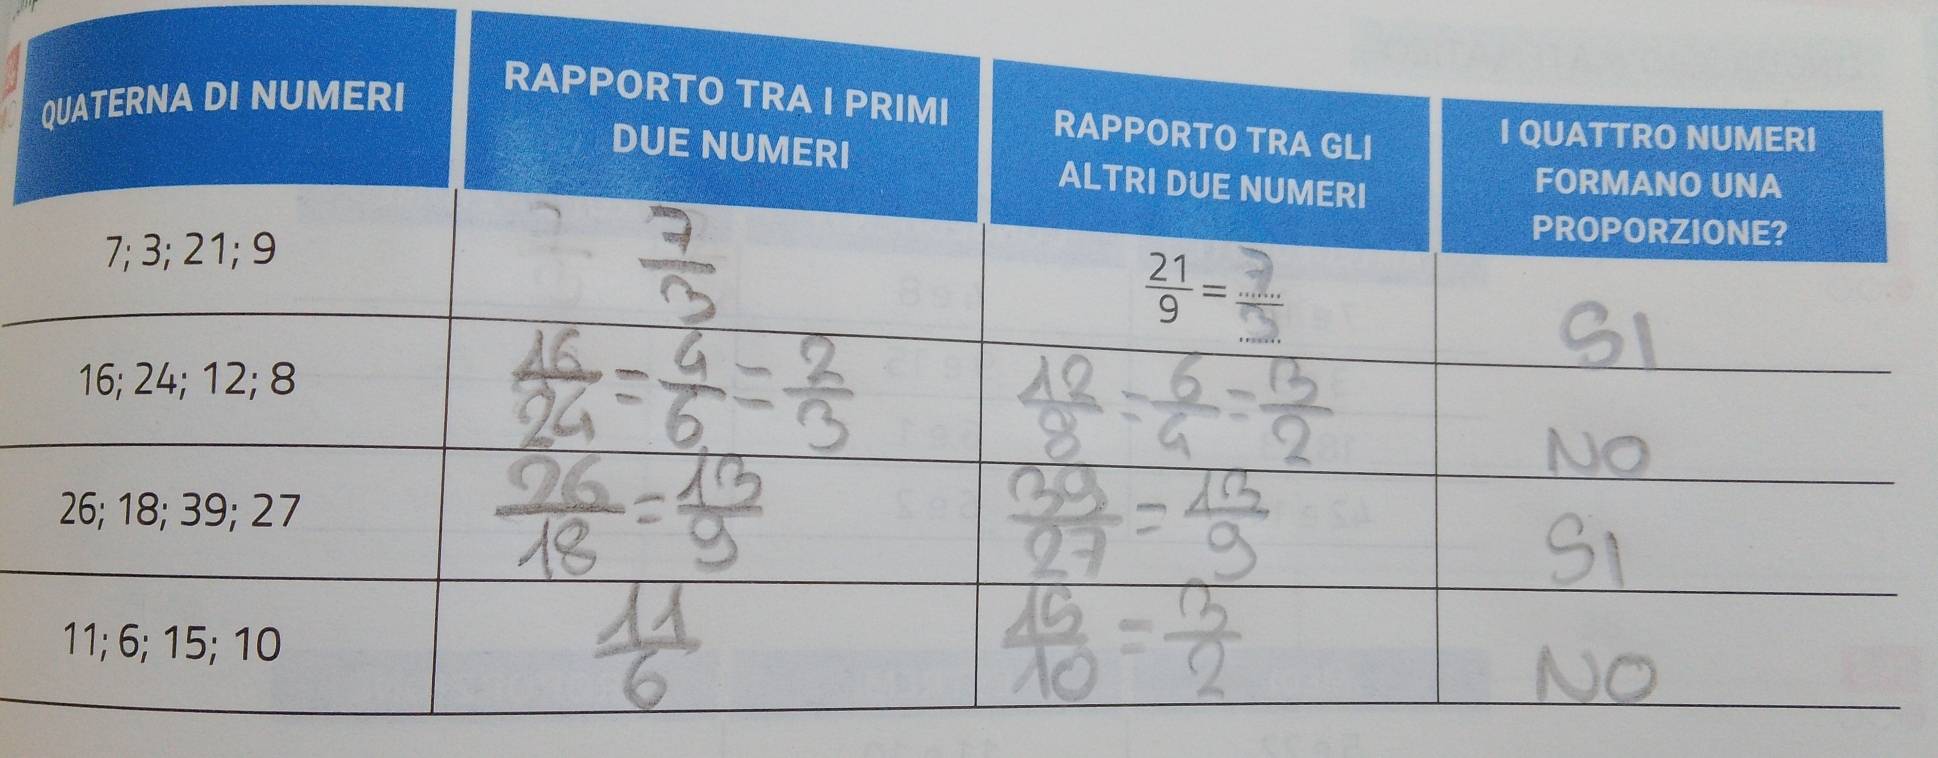 QUATERNA DI NUMERI
RAPPORTO TRA I PRIMI
DUE NUMERI
RAPPORTO TRA GLI
ALTRI DUE NUMERI
I QUATTRO NUMERI
FORMANO UNA
PROPORZIONE?
7; 3; 21; 9
7/3
21/9 = 7/3
SI
16; 24; 12; 8
16/24 = 4/6 = 2/3
12/8 = 6/4 = 3/2
NO
26; 18; 39; 27
26/18 = 13/9
39/27 = 13/9
SI
11; 6; 15; 10
11/6
15/10 = 3/2
NO